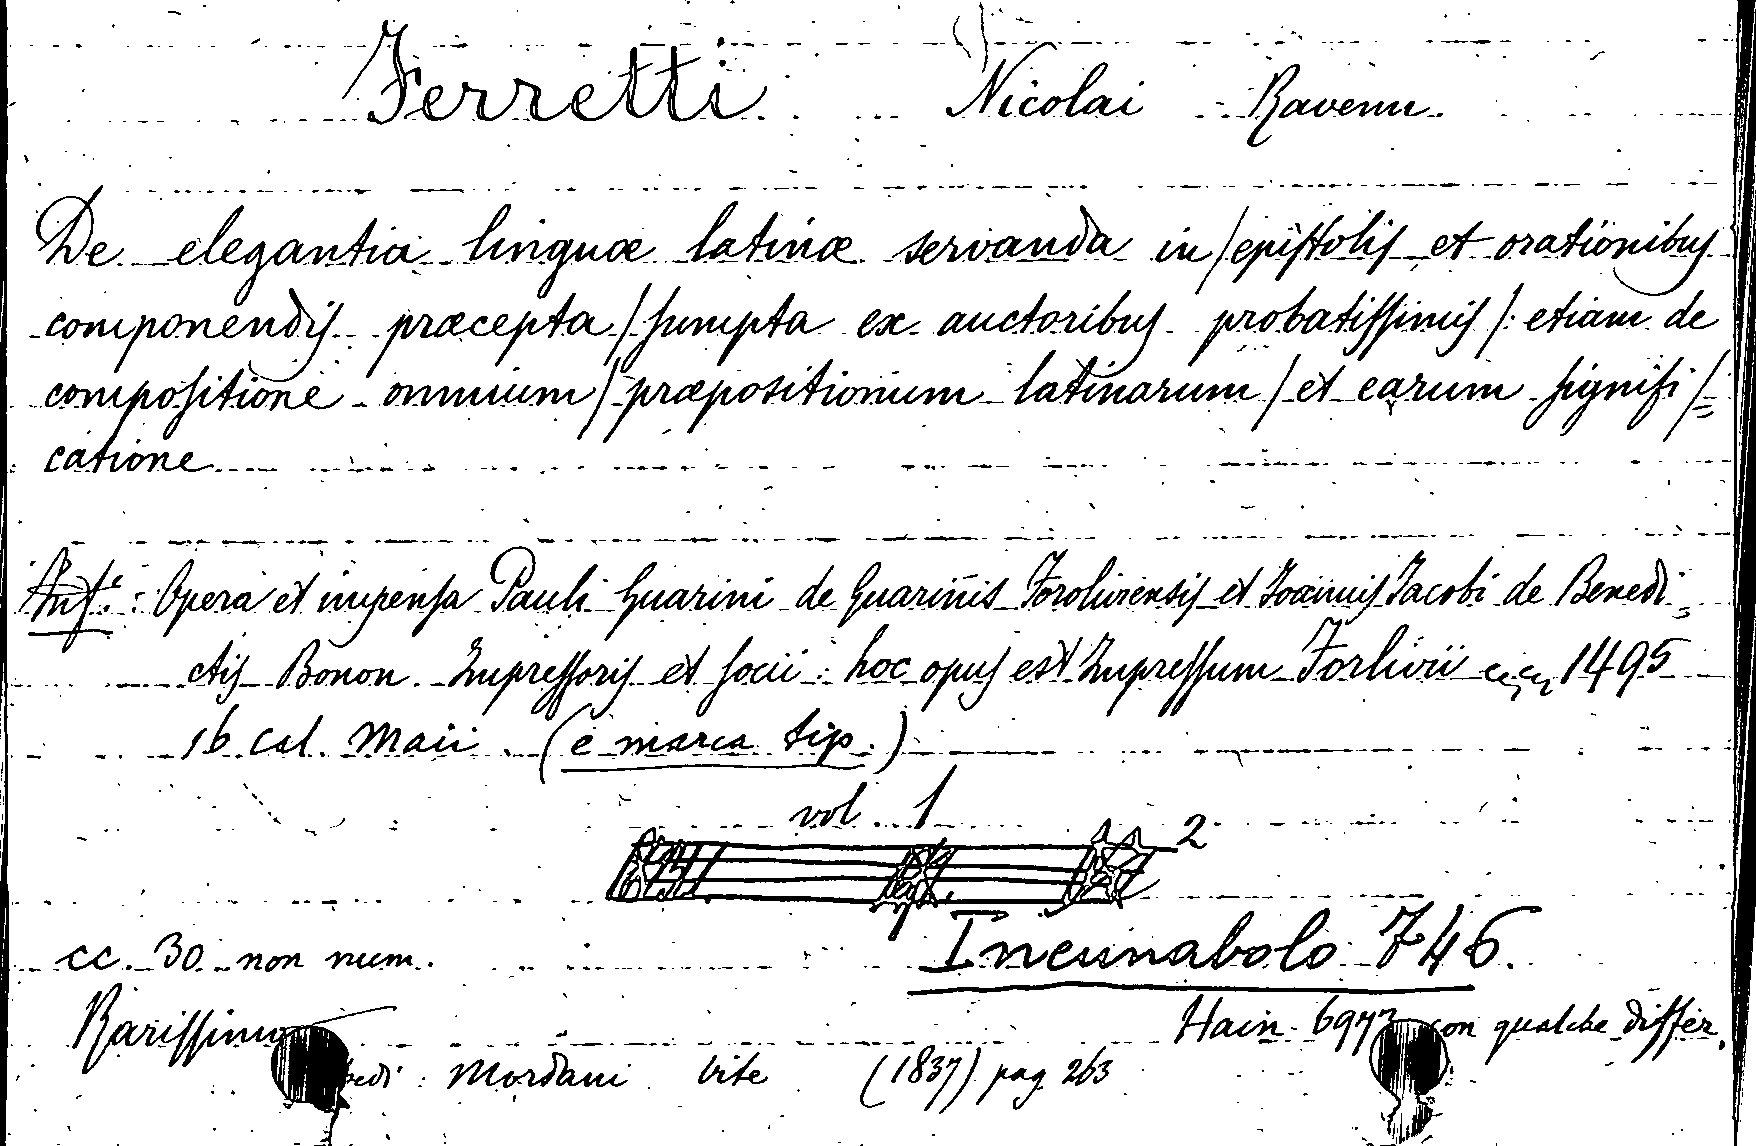 Ferretti Nicolai Ravenn.
De elegantia linguæ latinæ servanda in / epistolis et orationibus
componendis præcepta / sumpta ex auctoribus probatissimis /: etiam de
compositione omnium / præpositionum latinarum / et earum signifi /=
catione
Opera et impensa Pauli Guarini de Guarinis Foroliviensis et Joannis Jacobi de Benedi=
ctis Bonon. Impressoris et socii: hoc opus est Impressum Forlivii 1495
16 Cal. Maii. (e marca tip.)
vol. 1
2
cc. 30 non num.
Incunabolo 746.
Rarissimo
Hain 6977 con qualche differ.
Vedi: Mordani Vite (1837) pag 263